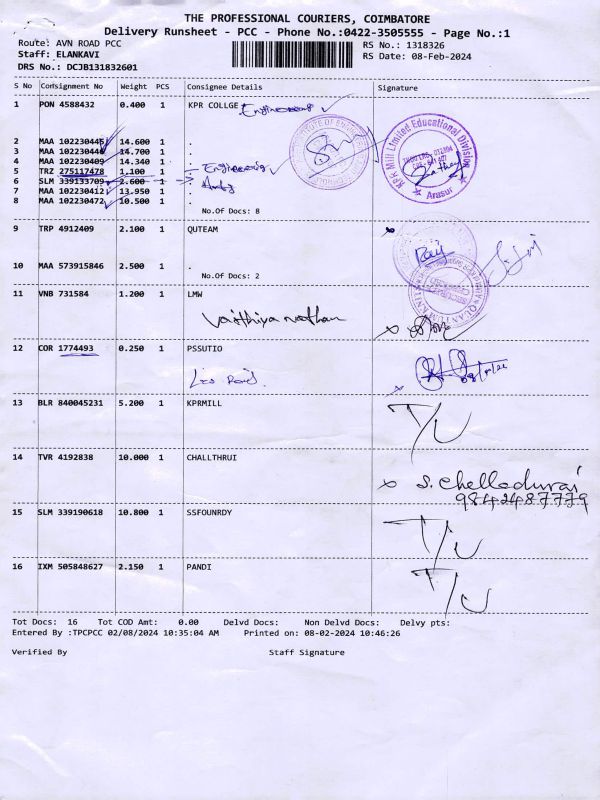 THE PROFESSIONAL COURIERS, COIMBATORE
Delivery Runsheet - PCC - Phone No.:0422-3505555 - Page No.:1
Route: AVN ROAD PCC RS No.: 1318326
Staff: ELANKAVI RS Date: 08-Feb-2024
DRS No.: DCJB131832601
S No Consignment No Weight PCS Consignee Details Signature
1 PON 4588432 0.400 1 KPR COLLGE Engineering
2 MAA 102230445 14.600 1 .
3 MAA 102230446 14.700 1 .
4 MAA 102230409 14.340 1 .
5 TRZ 275117478 1.100 1 . Engineering
6 SLM 339133709 2.600 1 .
7 MAA 102230412 13.950 1 .
8 MAA 102230472 10.500 1 .
No.Of Docs: 8
KPR Mill Limited Educational Division
Arasur
9 TRP 4912409 2.100 1 QUTEAM
10 MAA 573915846 2.500 1 .
No.Of Docs: 2
11 VNB 731584 1.200 1 LMW
Vaithiyanathan
12 COR 1774493 0.250 1 PSSUTIO
13 BLR 840045231 5.200 1 KPRMILL
T/U
14 TVR 4192838 10.000 1 CHALLTHRUI
x S. Chelladurai
9842487779
15 SLM 339190618 10.800 1 SSFOUNRDY
T/U
16 IXM 505848627 2.150 1 PANDI
T/U
Tot Docs: 16 Tot COD Amt: 0.00 Delvd Docs: Non Delvd Docs: Delvy pts:
Entered By :TPCPCC 02/08/2024 10:35:04 AM Printed on: 08-02-2024 10:46:26
Verified By Staff Signature